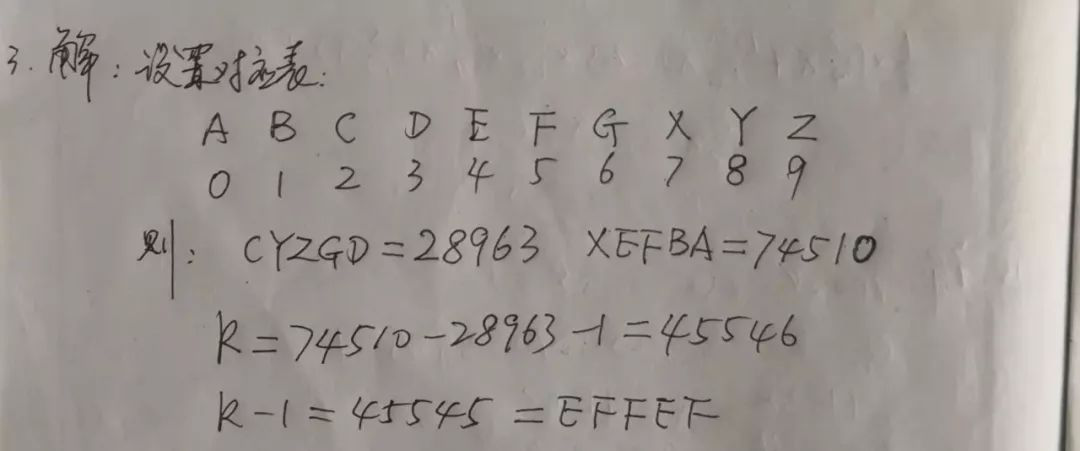 3. 解：设置对应表：
A B C D E F G X Y Z
0 1 2 3 4 5 6 7 8 9
则：CYZGD=28963 XEFBA=74510
R=74510-28963-1=45546
R-1=45545=EFFEF